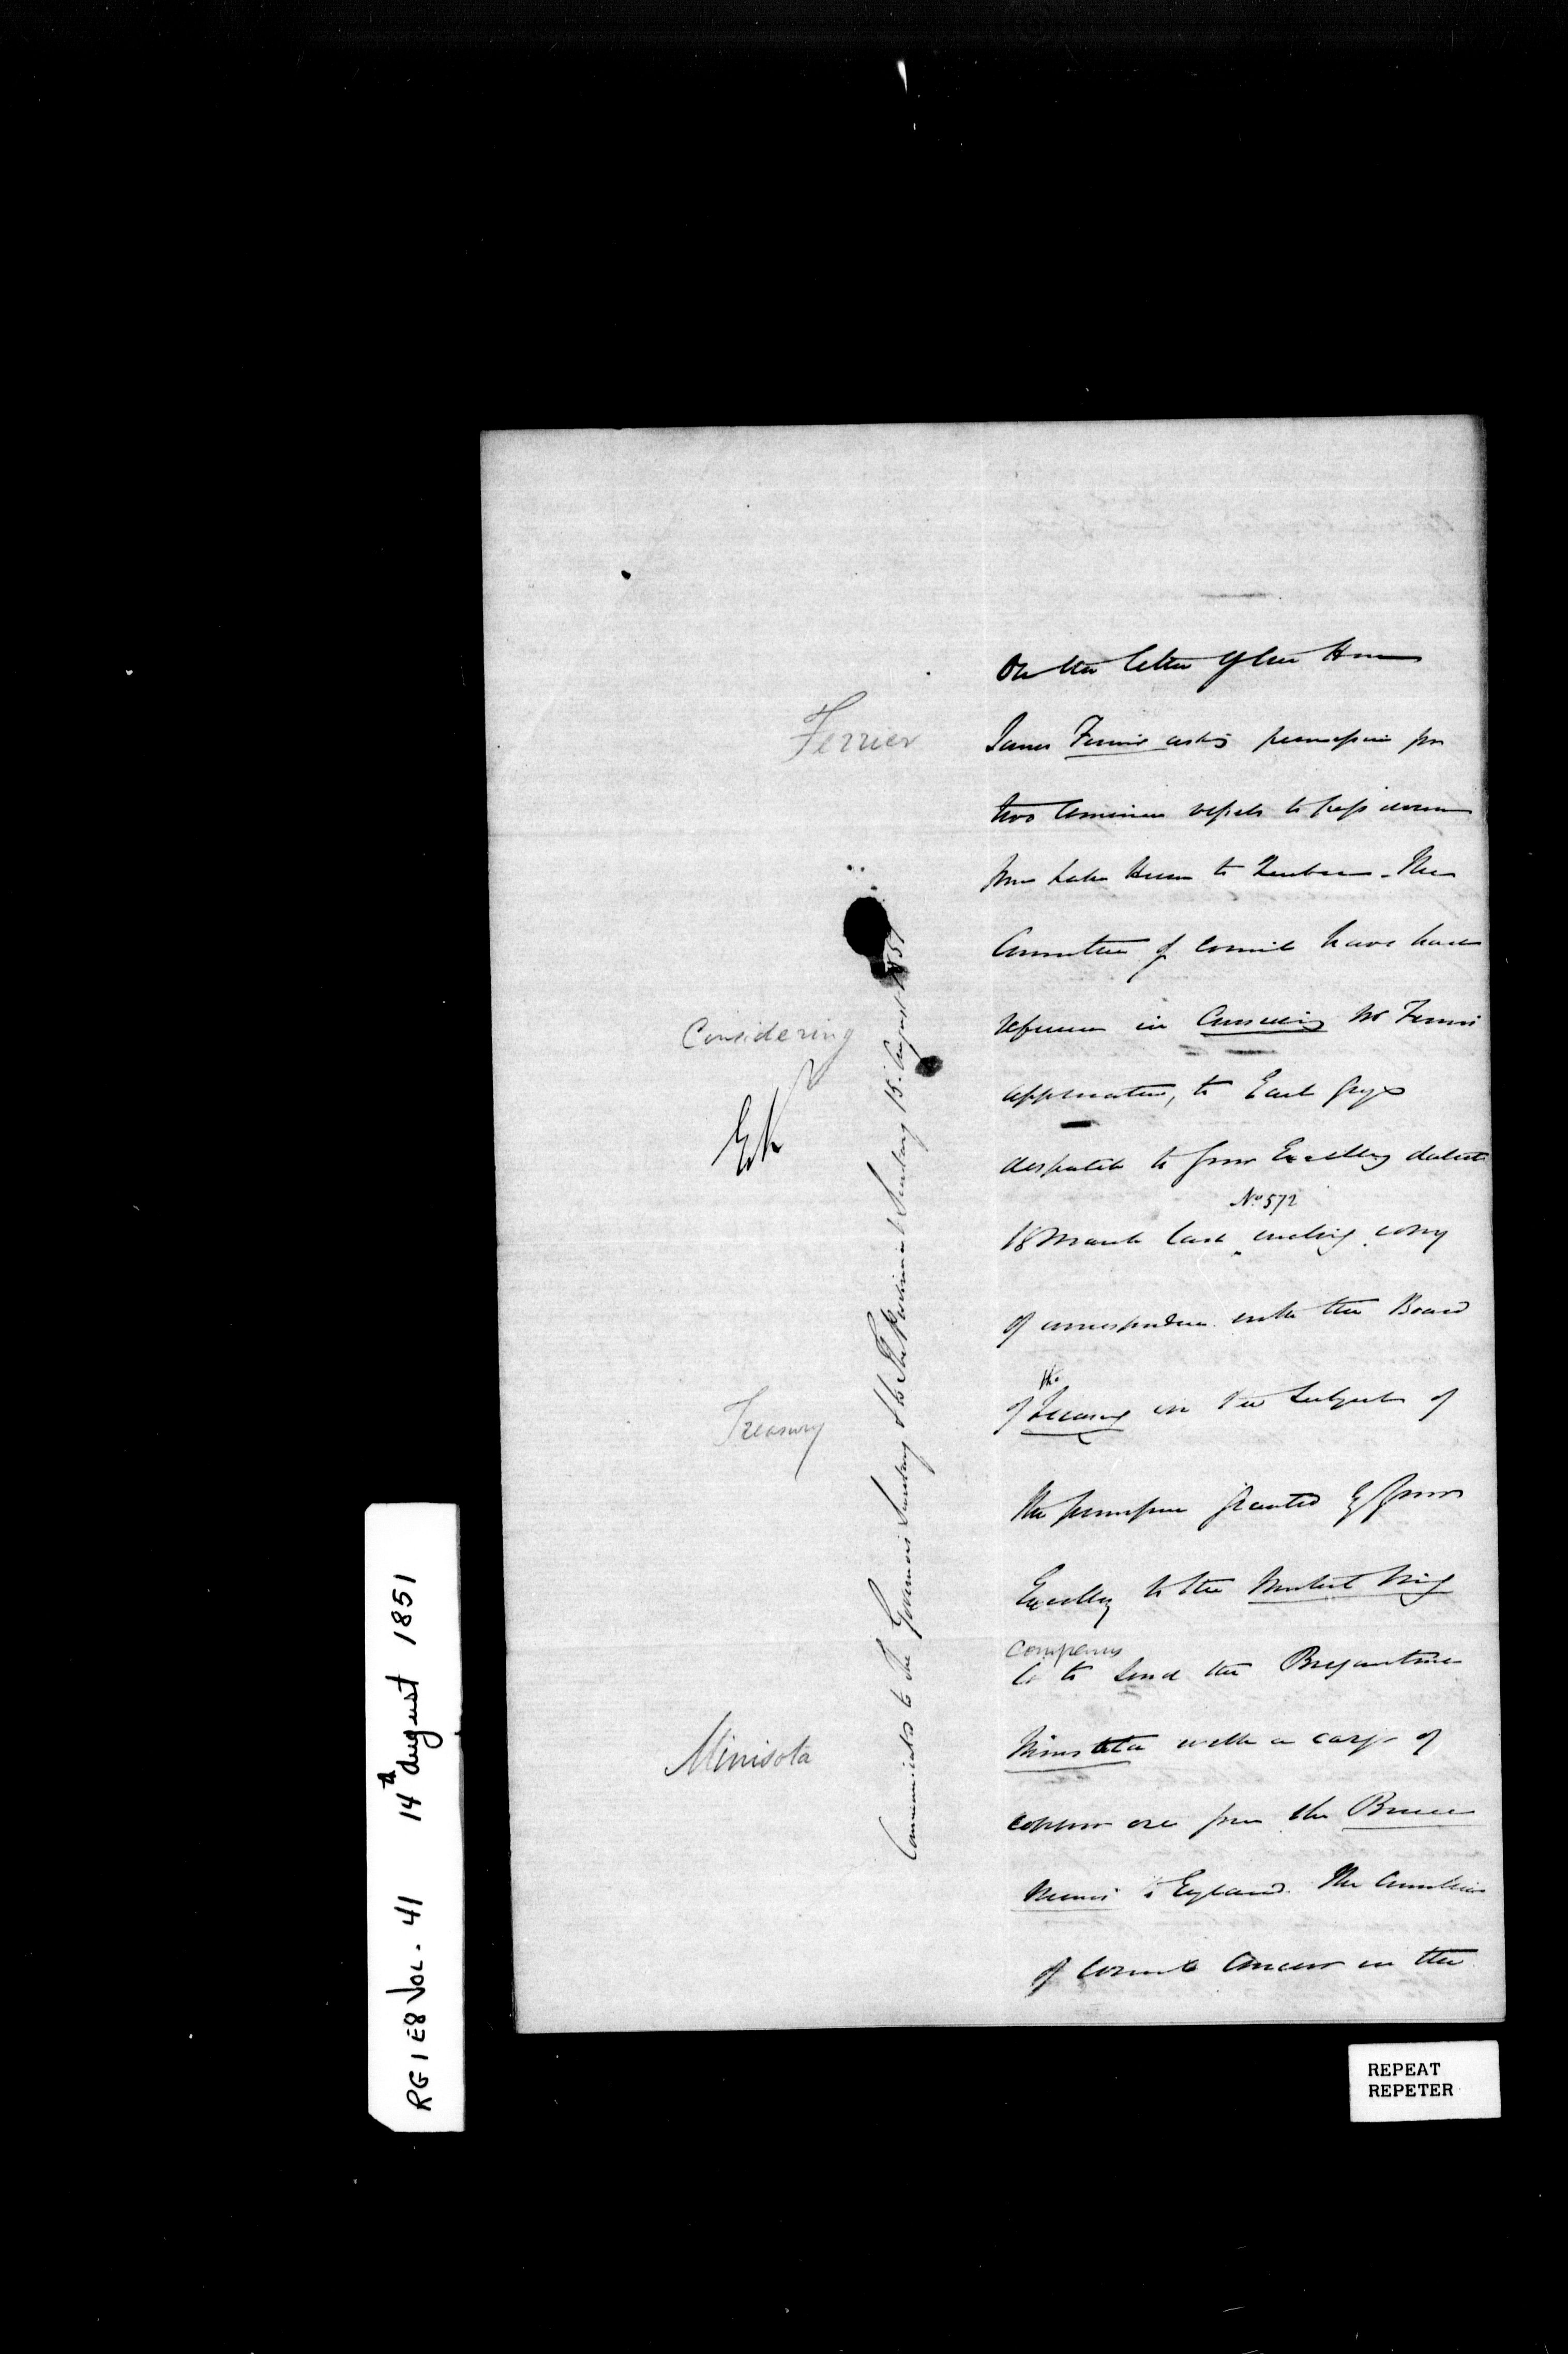 On the letter of the Hon
James Ferrier asking permission for
two American vessels to pass down
from Lake Huron to Quebec - The
Committee of Council have had
reference in Considering Mr Ferriers
application, to Earl Greys
despatch to Your Excellency dated
No 572
18 March last, copy
of correspondence with the Board
the
of Treasury on the subject of
the permission granted by Your
Excellency to the Montreal Ming
Companys
Co to send the Brigantine
Minisota with a cargo of
copper ore from the Bruce
Mines to England. The Committee
of Council concur in the
Ferrier
Considering
Treasury
Minisota
Communicated to The Governors Secretary & to The Provincial Secretary 15. August 1851
RG 1 E8 VOL. 41 14th August 1851
REPEAT
REPETER